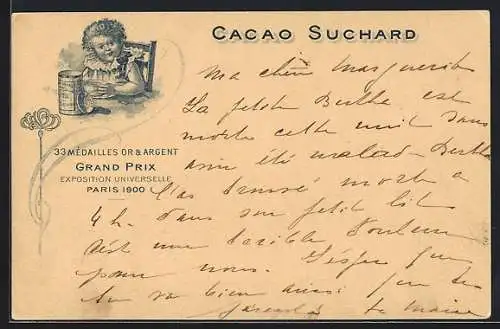 CACAO SUCHARD
33 MÉDAILLES OR & ARGENT
GRAND PRIX
EXPOSITION UNIVERSELLE
PARIS 1900
Ma chère Marguerite
La petite Berthe est
morte cette nuit sans
avoir été malade Berthe
l'as trouvé morte a
4 h. dans son petit lit
c'est une terrible douleur
pour nous. J'espère que
tu va bien ainsi que tes